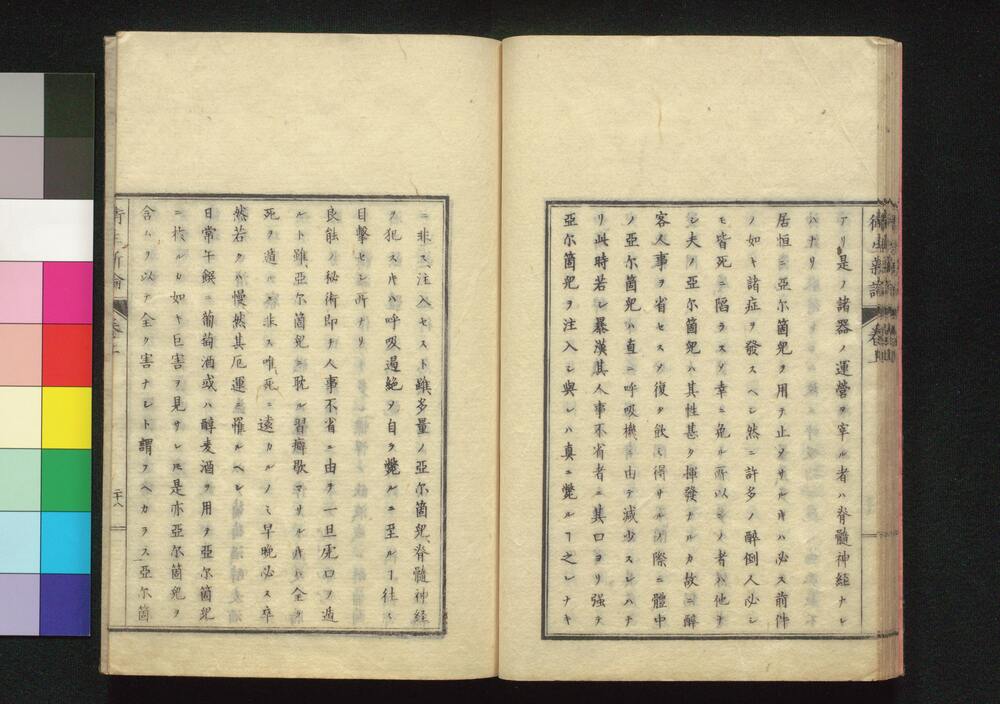 衛生新論 卷上
アリ是ノ諸器ノ運營ヲ宰ル者ハ脊髓神経ナレ
ハナリ
居恒ニ亞尓箇児ヲ用テ止マサルヰハ必ス前件
ノ如キ諸症ヲ發スヘシ然ニ許多ノ醉倒人必シ
モ皆死ニ陷ラスメ幸ニ免ル所以ンノ者ハ他ナ
シ夫ノ亞尓箇児ハ其性甚タ揮發ナルカ故ニ醉
客人事ヲ省セスメ復タ飲ミ得サルノ際ニ體中
ノ亞尓箇児ハ直ニ呼吸機ニ由テ減少スレハナ
リ此時若シ暴漢其人事不省者ニ其口ヨリ強テ
亞尓箇児ヲ注入シ與レハ真ニ斃ルヿ之レナキ
ニ非ス注入セスト雖多量ノ亞尓箇児脊髓神经
ヲ犯スヰハ呼吸過絶メ自ラ斃ルニ至ルヿ往々
目擊セシ所ナリ
良能ノ秘術即チ人事不省ニ由テ一旦死ロヲ遁
ルト雖亞尓箇児ニ耽ル習癖歇マサルヰハ全ク
死ヲ遁ルニ非ス唯死ニ遠カルノミ早晩必ス卒
然若クハ慢然其厄運ニ罹ルヘシ
日常午餐ニ葡萄酒或ハ醇麦酒ヲ用テ亞尓箇児
ニ於ルカ如キ巨害ヲ見サレ𪜈是亦亞尓箇児ヲ
含ムヲ以テ全ク害ナシト謂フヘカラス亞尓箇
衛生新論 卷上 二十八